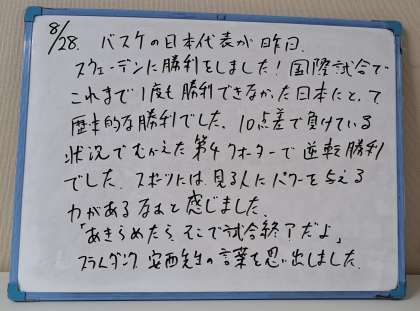 8/28. バスケの日本代表が昨日、
スウェーデンに勝利をしました！国際試合で
これまで1度も勝利できなかった日本にとって
歴史的な勝利でした。10点差で負けている
状況でむかえた第4クォーターで逆転勝利
でした。スポーツには、見る人にパワーを与える
力があるなぁと感じました。
「あきらめたら、そこで試合終了だよ」
スラムダンク 安西先生の言葉を思い出しました。